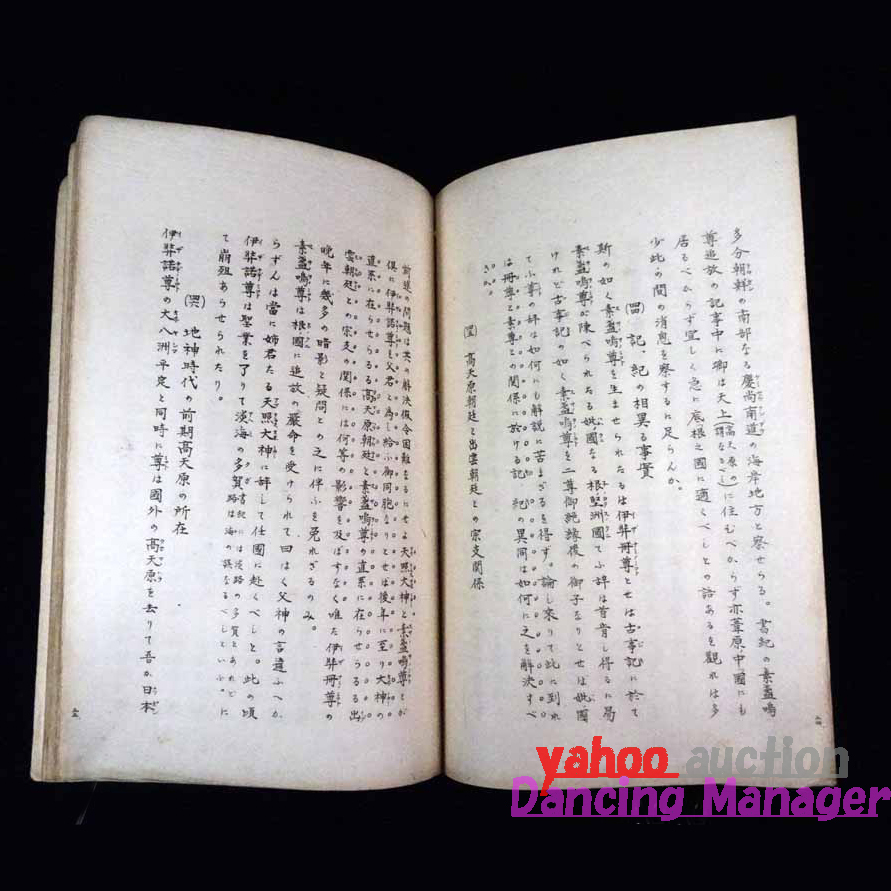 多分朝鮮の南部なる慶尚南道の海岸地方と察せらる。書紀の素盞嗚
尊追放の記事中に卿は天上(高天原の謂なるべし)に住むべからず亦葦原中國にも
居るべからず宜しく急に底根之國に適くべしとの語あるを觀れは多
少此の間の消息を察するに足らんか。
㈣ 記、紀の相異る事實
斯の如く素盞嗚尊を生ませられたるは伊弉冊尊とせは古事記に於て
素盞嗚尊が陳べられたる妣國なる根堅洲國てふ辞は首肯し得るに
けれど古事記の如く素盞嗚尊を二尊御絶縁後の御子なりとせは妣國
てふ尊の辞は如何にも解説に苦まざるを得ず。論し來りて此に到れ
は冊尊と素尊との關係に於ける記、紀の異同は如何に之を解決すべ
きか。
高天原朝廷と出雲朝廷との宗支關係
前述の問題は其の解決假令困難なるにせよ天照大神と素盞嗚尊とが
俱に伊弉諾尊を父君と為し給ふ御同胞なりとせは後年に至り大神の
直系に在らせらるる高天原朝廷と素盞嗚尊の直系に在らせらるる出
雲朝廷との宗支の關係には何等の影響を及ぼすなく唯た伊弉冊尊の
晩年に幾多の暗影と疑問との之に伴ふを免れざるのみ。
素盞嗚尊は根國に追放の嚴命を受けられて曰はく父神の言違ふへか
らずんは當に姉君たる天照大神に辞して仕國に赴くべしと。此の頃
伊弉諾尊は聖業を了りて淡海の多賀書紀には淡路の多賀とあれどに路は海の誤なるべしといふ。に
て崩殂あらせられたり。
地神時代の前期高天原の所在
伊弉諾尊の大八洲平定と同時に尊は國外の高天原を去りて吾か日本
yahoo auction
Dancing Manager